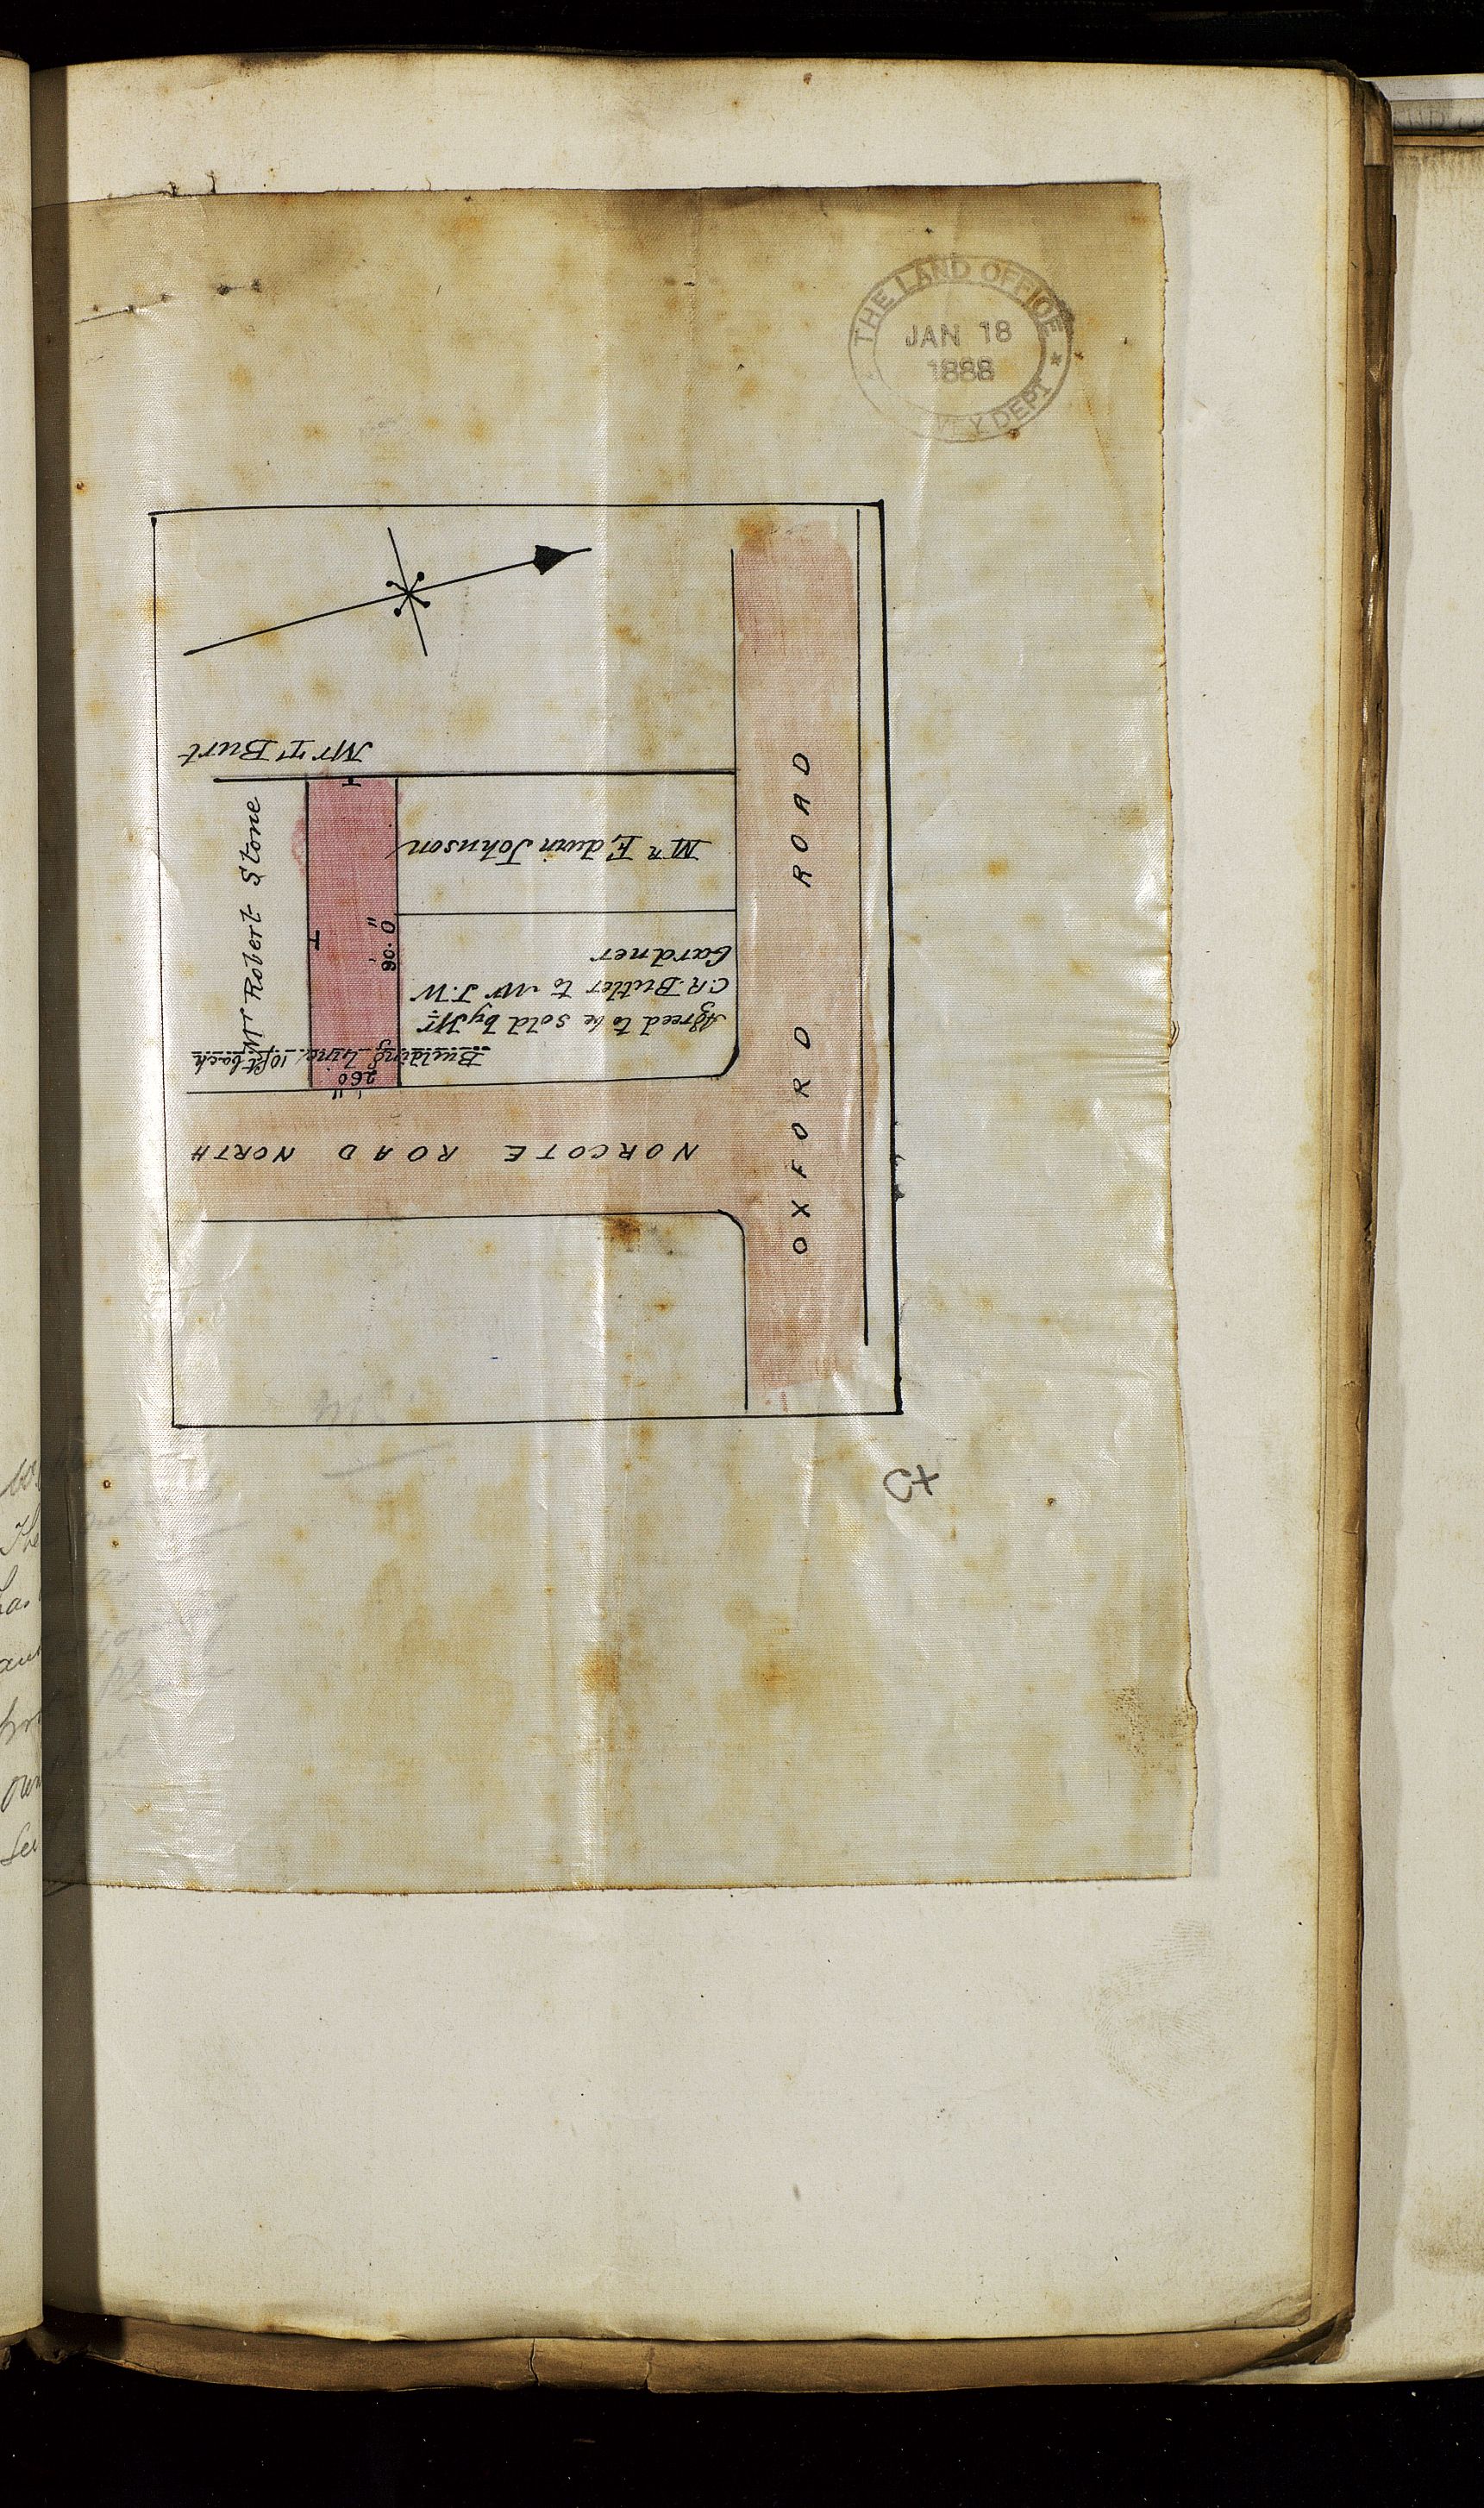 THE LAND OFFICE
JAN 18
1888
DEPT
Mr T Burt
Mr Robert Stone
Mr Edwin Johnson
90' 0"
Agreed to be sold by Mr
C.R. Butler to Mr J.W
Gardner
Building Line 10ft back
26' 0"
NORCOTE ROAD NORTH
OXFORD ROAD